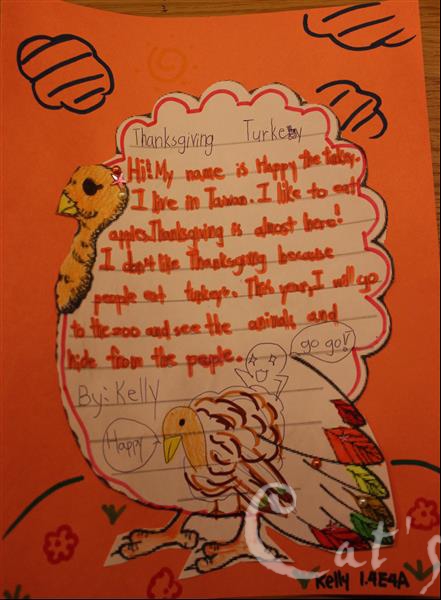 Thanksgiving Turkey
Hi! My name is Happy the turkey.
I live in Taiwan. I like to eat
apples. Thanksgiving is almost here!
I don't like Thanksgiving because
people eat turkeys. This year, I will go
to the zoo and see the animals and
hide from the people.
go go!
By: Kelly
Happy
Cat's
Kelly 1.4E4A